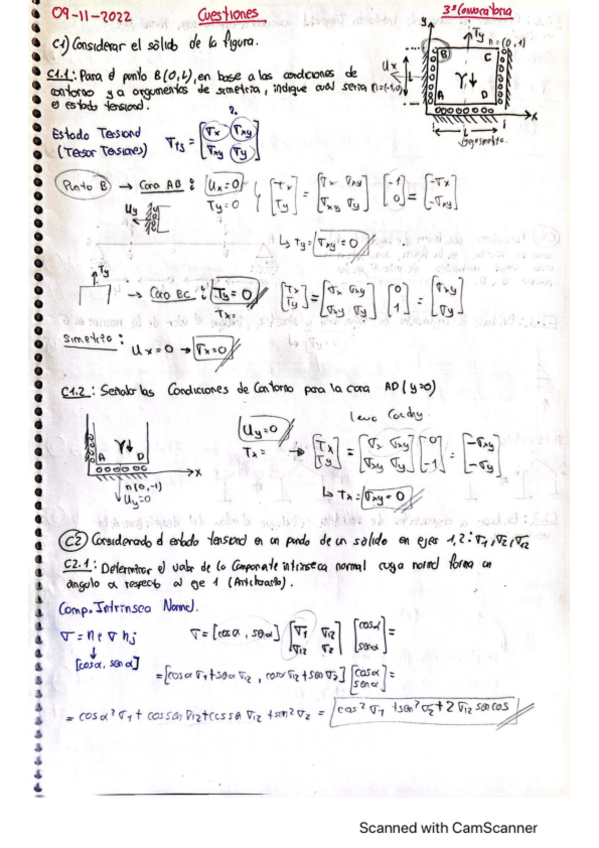 09-11-2022 Cuestiones 3ª Convocatoria
C1) Considerar el sólido de la figura.
C1.1: Para el punto B(0,L), en base a las condiciones de
contorno y a argumentos de simetría, indique cual seria n=(-1,0)
el estado tensional.
y Ty n=(0,1)
Ux B C
L γ↓
A D
x
L
Estado Tensional
(Tensor Tensiones) σij = [σx σxy; σxy σy]
Punto B → Cara AB: Ux=0 Ty=0 y [Tx; Ty] = [σx σxy; σxy σy] [-1; 0] = [-σx; -σxy]
Uy
↳ Ty = σxy = 0
Ty → Cara BC: Ty = 0 Tx= [Tx; Ty] = [σx σxy; σxy σy] [0; 1] = [σxy; σy]
Simetria: Ux=0 → σx=0
C1.2: Señalar las Condiciones de Contorno para la cara AD (y=0)
Uy=0
Tx =
[Tx; Ty] = [σx σxy; σxy σy] [0; -1] = [-σxy; -σy]
γ↓
A D
x
n(0,-1)
Uy=0
↳ Tx = σxy = 0
C2) Considerando el estado tensional en un punto de un sólido en ejes 1,2: σ1, σ2, σ12
C2.1: Determinar el valor de la Componente intrínseca normal cuya normal forma un
angulo α respecto al eje 1 (Antihorario).
Comp. Intrinseca Normal.
σ = ni σ nj σ = [cosα, senα] [σ1 σ12; σ12 σ2] [cosα; senα] =
↓
[cosα, senα]
= [cosα σ1 + senα σ12, cosα σ12 + sen σ2] [cosα; senα] =
= cosα² σ1 + cos sen σ12 + cos sen σ12 + sen² σ2 = cos² σ1 + sen² σ2 + 2 σ12 sen cos
Scanned with CamScanner